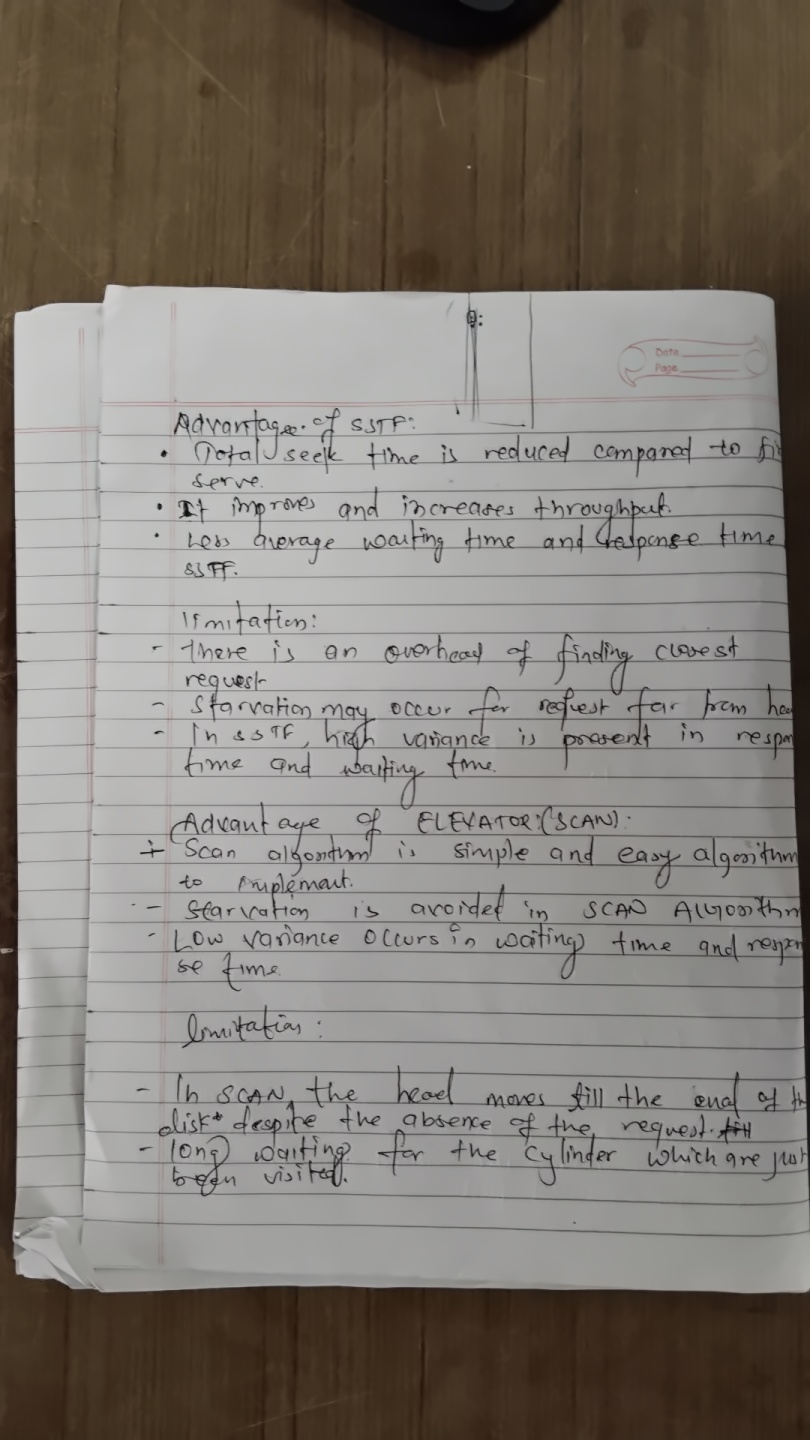 Date
Page
Advantage of SSTF:
• Total seek time is reduced compared to fi
serve.
• It improves and increases throughput.
• Less average waiting time and response time
SSTF.
limitation:
- There is an overhead of finding closest
request
- Starvation may occur for request far from hea
- In SSTF, high variance is present in respon
time and waiting time.
Advantage of ELEVATOR (SCAN):
+ Scan algorithm is simple and easy algorithm
to implement.
- Starvation is avoided in SCAN Algorithm
- Low variance occurs in waiting time and respon
se time.
limitation:
- In SCAN, the head moves till the end of th
disk despite the absence of the request.
- long waiting for the cylinder which are just
been visited.